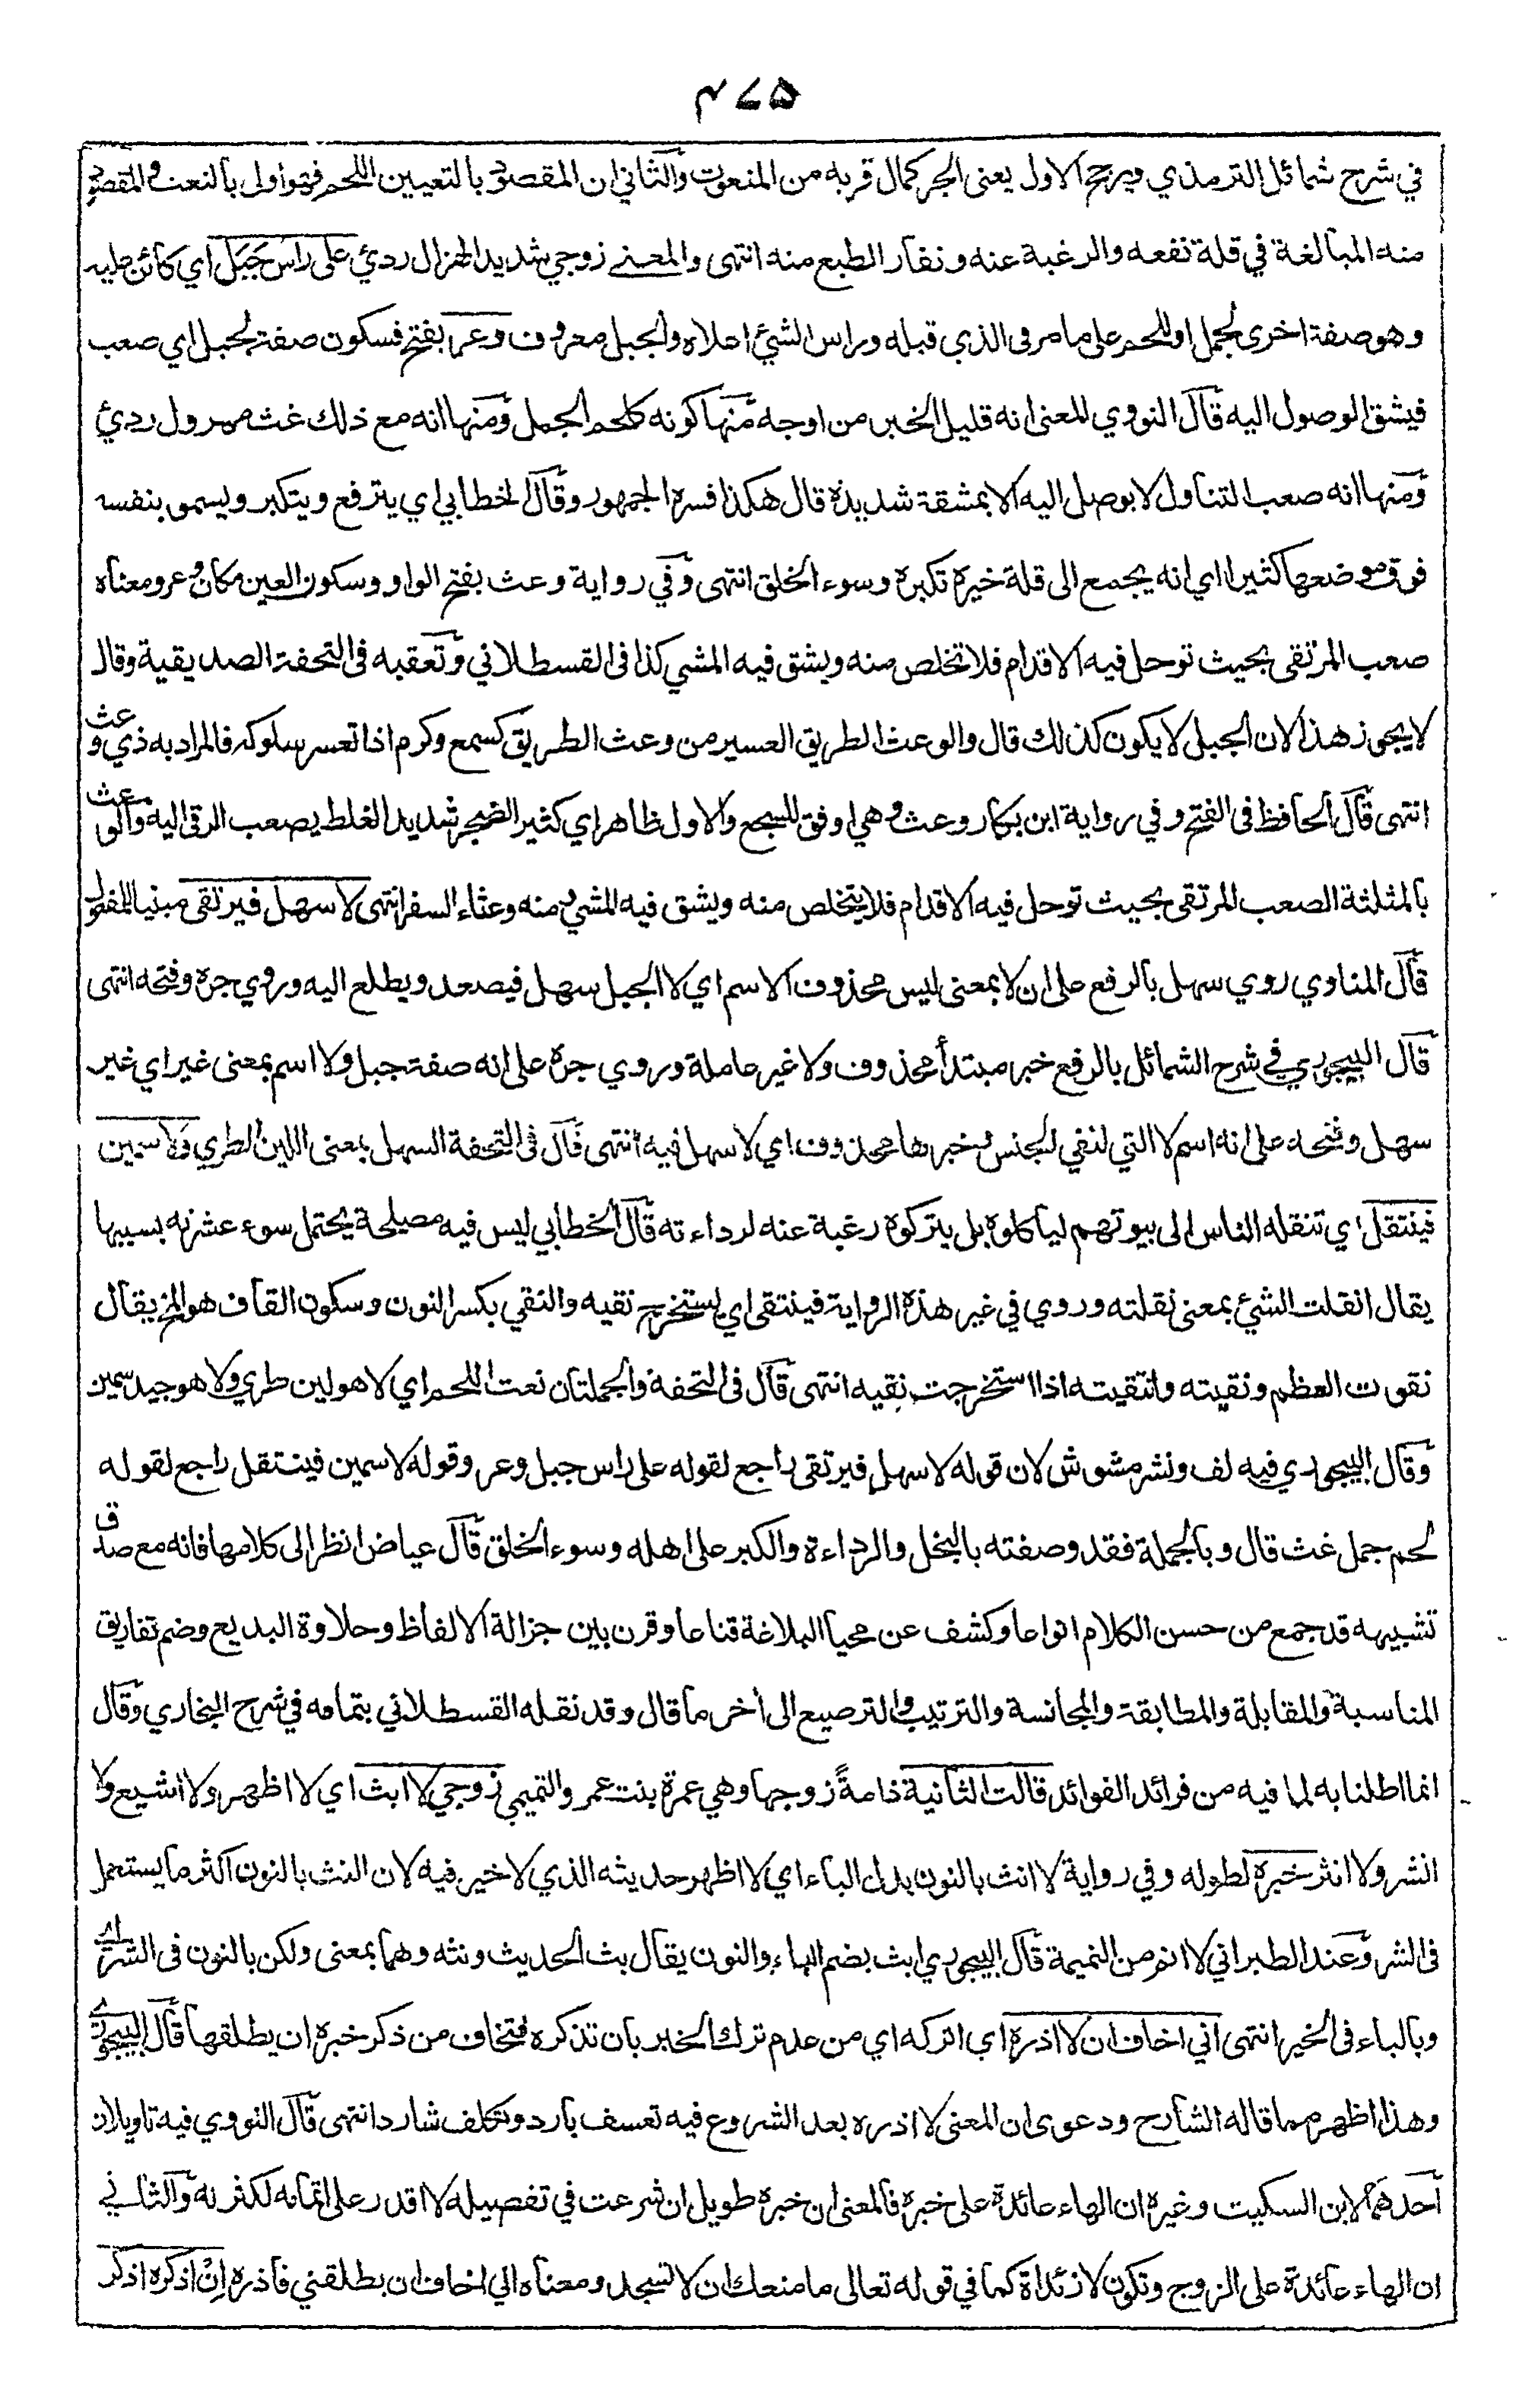 ۴۷۵
في شرح شمائل الترمذي ويرجح الاول يعنى الجر كمال قربه من المنعوت والثاني ان المقصود بالتعيين اللحم فهو اولى بالنعت والمقصود
منه المبالغة في قلة نفعه والرغبة عنه ونفار الطبع منه انتهى والمعنى زوجي شديد الهزال ردئ على راس جَبَل اي كائن عليه
وهو صفة اخرى لجمل او للحم على ما مر فى الذي قبله وراس الشئ اعلاه والجبل معروف وعر بفتح فسكون صفة لجبل اي صعب
فيشق الوصول اليه قال النووي المعنى انه قليل الخير من اوجه منها كونه كلحم الجمل ومنها انه مع ذلك غث مهزول ردئ
ومنها انه صعب التناول لا يوصل اليه الا بمشقة شديدة قال هكذا فسره الجمهور وقال الخطابي اي يترفع ويتكبر ويسمو بنفسه
فوق موضعها كثيرا اي انه يجمع الى قلة خيره تكبره وسوء الخلق انتهى وفي رواية وعث بفتح الواو وسكون العين مكان وعر ومعناه
صعب المرتقى بحيث توحل فيه الاقدام فلا تخلص منه ويشق فيه المشي كذا فى القسطلاني وتعقبه فى التحفة الصديقية وقال
لا يجوز هذا لان الجبل لا يكون كذلك قال والوعث الطريق العسير من وعث الطريق كسمع وكرم اذا تعسر سلوكه فالمراد به ذي وعث
انتهى قال الحافظ فى الفتح وفي رواية ابن بكار وعث وهي اوفق للسجع والاول ظاهر اي كثير الضجر شديد الغلط يصعب الرقي اليه والوعث
بالمثلثة الصعب المرتقى بحيث توحل فيه الاقدام فلا يتخلص منه ويشق فيه المشي ومنه وعثاء السفر انتهى لا سهل فيرتقى مبنيا للمفعول
قال المناوي روي سهل بالرفع على ان لا بمعنى ليس محذوف الاسم اي لا الجبل سهل فيصعد ويطلع اليه وروي جره وفتحه انتهى
قال البيجوري في شرح الشمائل بالرفع خبر مبتدأ محذوف ولا غير عاملة وروي جره على انه صفة جبل ولا اسم بمعنى غير اي غير
سهل وفتحه على انه اسم لا التي لنفي الجنس وخبرها محذوف اي لا سهل فيه انتهى قال فى التحفة السهل بمعنى اللين الطري ولا سمين
فينتقل اي تنقله الناس الى بيوتهم ليأكلوه بل يتركوه رغبة عنه لرداءته قال الخطابي ليس فيه مصلحة يحتمل سوء عشرته بسببها
يقال انقلت الشئ بمعنى نقلته وروي في غير هذه الرواية فينتقى اي يستخرج نقيه والنقي بكسر النون وسكون القاف هو المخ يقال
نقوت العظم ونقيته وانتقيته اذا استخرجت نقيه انتهى قال فى التحفة والجملتان نعت اللحم اي لا هو لين طري ولا هو جيد سمين
وقال البيجوري فيه لف ونشر مشوش لان قوله لا سهل فيرتقى راجع لقوله على راس جبل وعر وقوله لا سمين فينتقل راجع لقوله
لحم جمل غث قال وبالجملة فقد وصفته بالبخل والرداءة والكبر على اهله وسوء الخلق قال عياض انظر الى كلامها فانه مع صدق
تشبيهه قد جمع من حسن الكلام انواعا وكشف عن محيا البلاغة قناعا وقرن بين جزالة الالفاظ وحلاوة البديع وضم تفاريق
المناسبة والمقابلة والمطابقة والمجانسة والترتيب والترصيع الى أخر ما قال وقد نقله القسطلاني بتمامه في شرح البخاري وقال
انما اطلنا به لما فيه من فرائد الفوائد قالت الثانية ذامةً زوجها وهي عمرة بنت عمرو التميمي زوجي لا ابث اي لا اظهر ولا اشيع ولا
انشر ولا انثر خبره لطوله وفي رواية لا انث بالنون بدل الباء اي لا اظهر حديثه الذي لا خير فيه لان النث بالنون اكثر ما يستعمل
فى الشر وعند الطبراني لا انم من النميمة قال البيجوري ابث بضم الباء والنون يقال بث الحديث ونثه وهما بمعنى ولكن بالنون فى الشر
وبالباء فى الخير انتهى اني اخاف ان لا اذره اي اتركه اي من عدم ترك الخبر بان تذكره فتخاف من ذكر خبره ان يطلقها قال البيجوري
وهذا اظهر مما قاله الشارح ودعوى ان المعنى لا اذره بعد الشروع فيه تعسف بارد وتكلف شارد انتهى قال النووي فيه تاويلان
احدهما لابن السكيت وغيره ان الهاء عائدة على خبره فالمعنى ان خبره طويل ان شرعت في تفصيله لا اقدر على اتمامه لكثرته والثاني
ان الهاء عائدة على الزوج وتكون لا زئداة كما في قوله تعالى ما منعك ان لا تسجد ومعناه اني اخاف ان يطلقني فاذره اِنْ اذكره اذكر